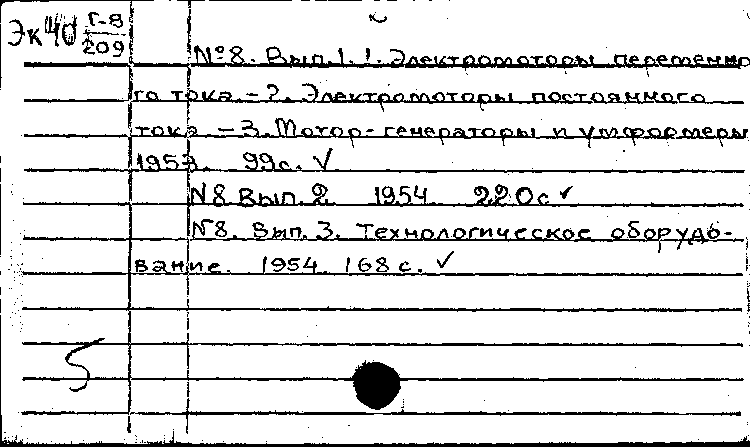 Эк 40 Г-8
209
№8. Вып. 1. 1. Электромоторы переменно
го тока. – 2. Электромоторы постоянного
тока. – 3. Мотор-генераторы и умформеры
1953. 99с. ✓
N8 Вып. 2 1954. 220с ✓
№8. Вып. 3. Технологическое оборудо-
вание. 1954. 168 с. ✓
5